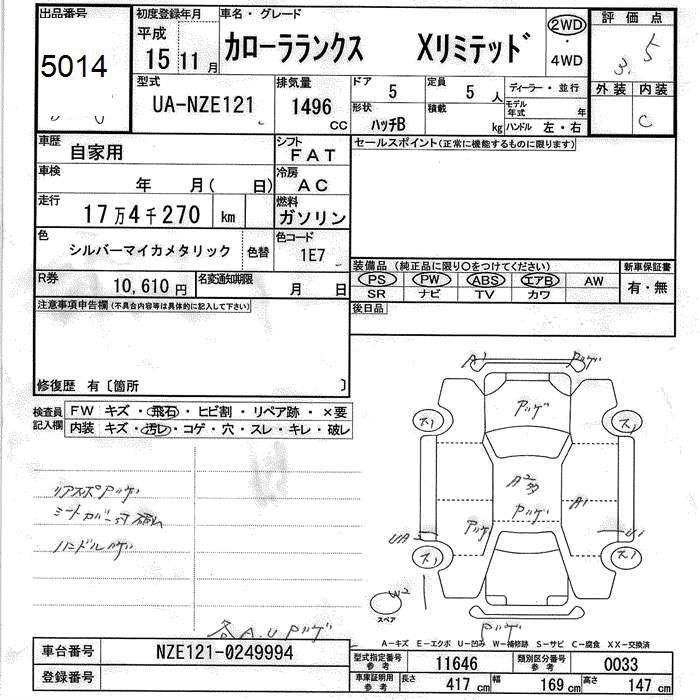 出品番号 初度登録年月 車名・グレード 評価点
5014 平成 15 11月 カローラランクス Xリミテッド 2WD・4WD 3.5
型式 UA-NZE121 排気量 1496 CC ドア 5 定員 5 人 ディーラー・並行 外装 内装
形状 ハッチB 積載 kg モデル年式 年 C
ハンドル 左・右
車歴 自家用 シフト FAT セールスポイント(正常に機能するものに限ります)
車検 年 月( 日) 冷房 AC
走行 17万4千270 km 燃料 ガソリン
色 シルバーマイカメタリック 色替 色コード 1E7
装備品 (純正品に限り○をつけてください) 新車保証書
R券 10,610円 名変通知期限 月 日 PS PW ABS エアB AW 有・無
SR ナビ TV カワ
注意事項申告欄(不具合内容等は具体的に記入して下さい) 後日品
修復歴 有〔箇所 〕
検査員記入欄 FW キズ・飛石・ヒビ割・リペア跡・×要
内装 キズ・汚レ・コゲ・穴・スレ・キレ・破レ
A1
ス1
ス1
A2多
A1
UA
U1
ス1
ス1
W2
スペア
リアスポ
ハンドル
各A.U
A-キズ E-エクボ U-凹み W-補修跡 S-サビ C-腐食 XX-交換済
車台番号 NZE121-0249994 型式指定番号 参考 11646 類別区分番号 参考 0033
登録番号 車庫証明用 参考 長さ 417 cm 幅 169 cm 高さ 147 cm